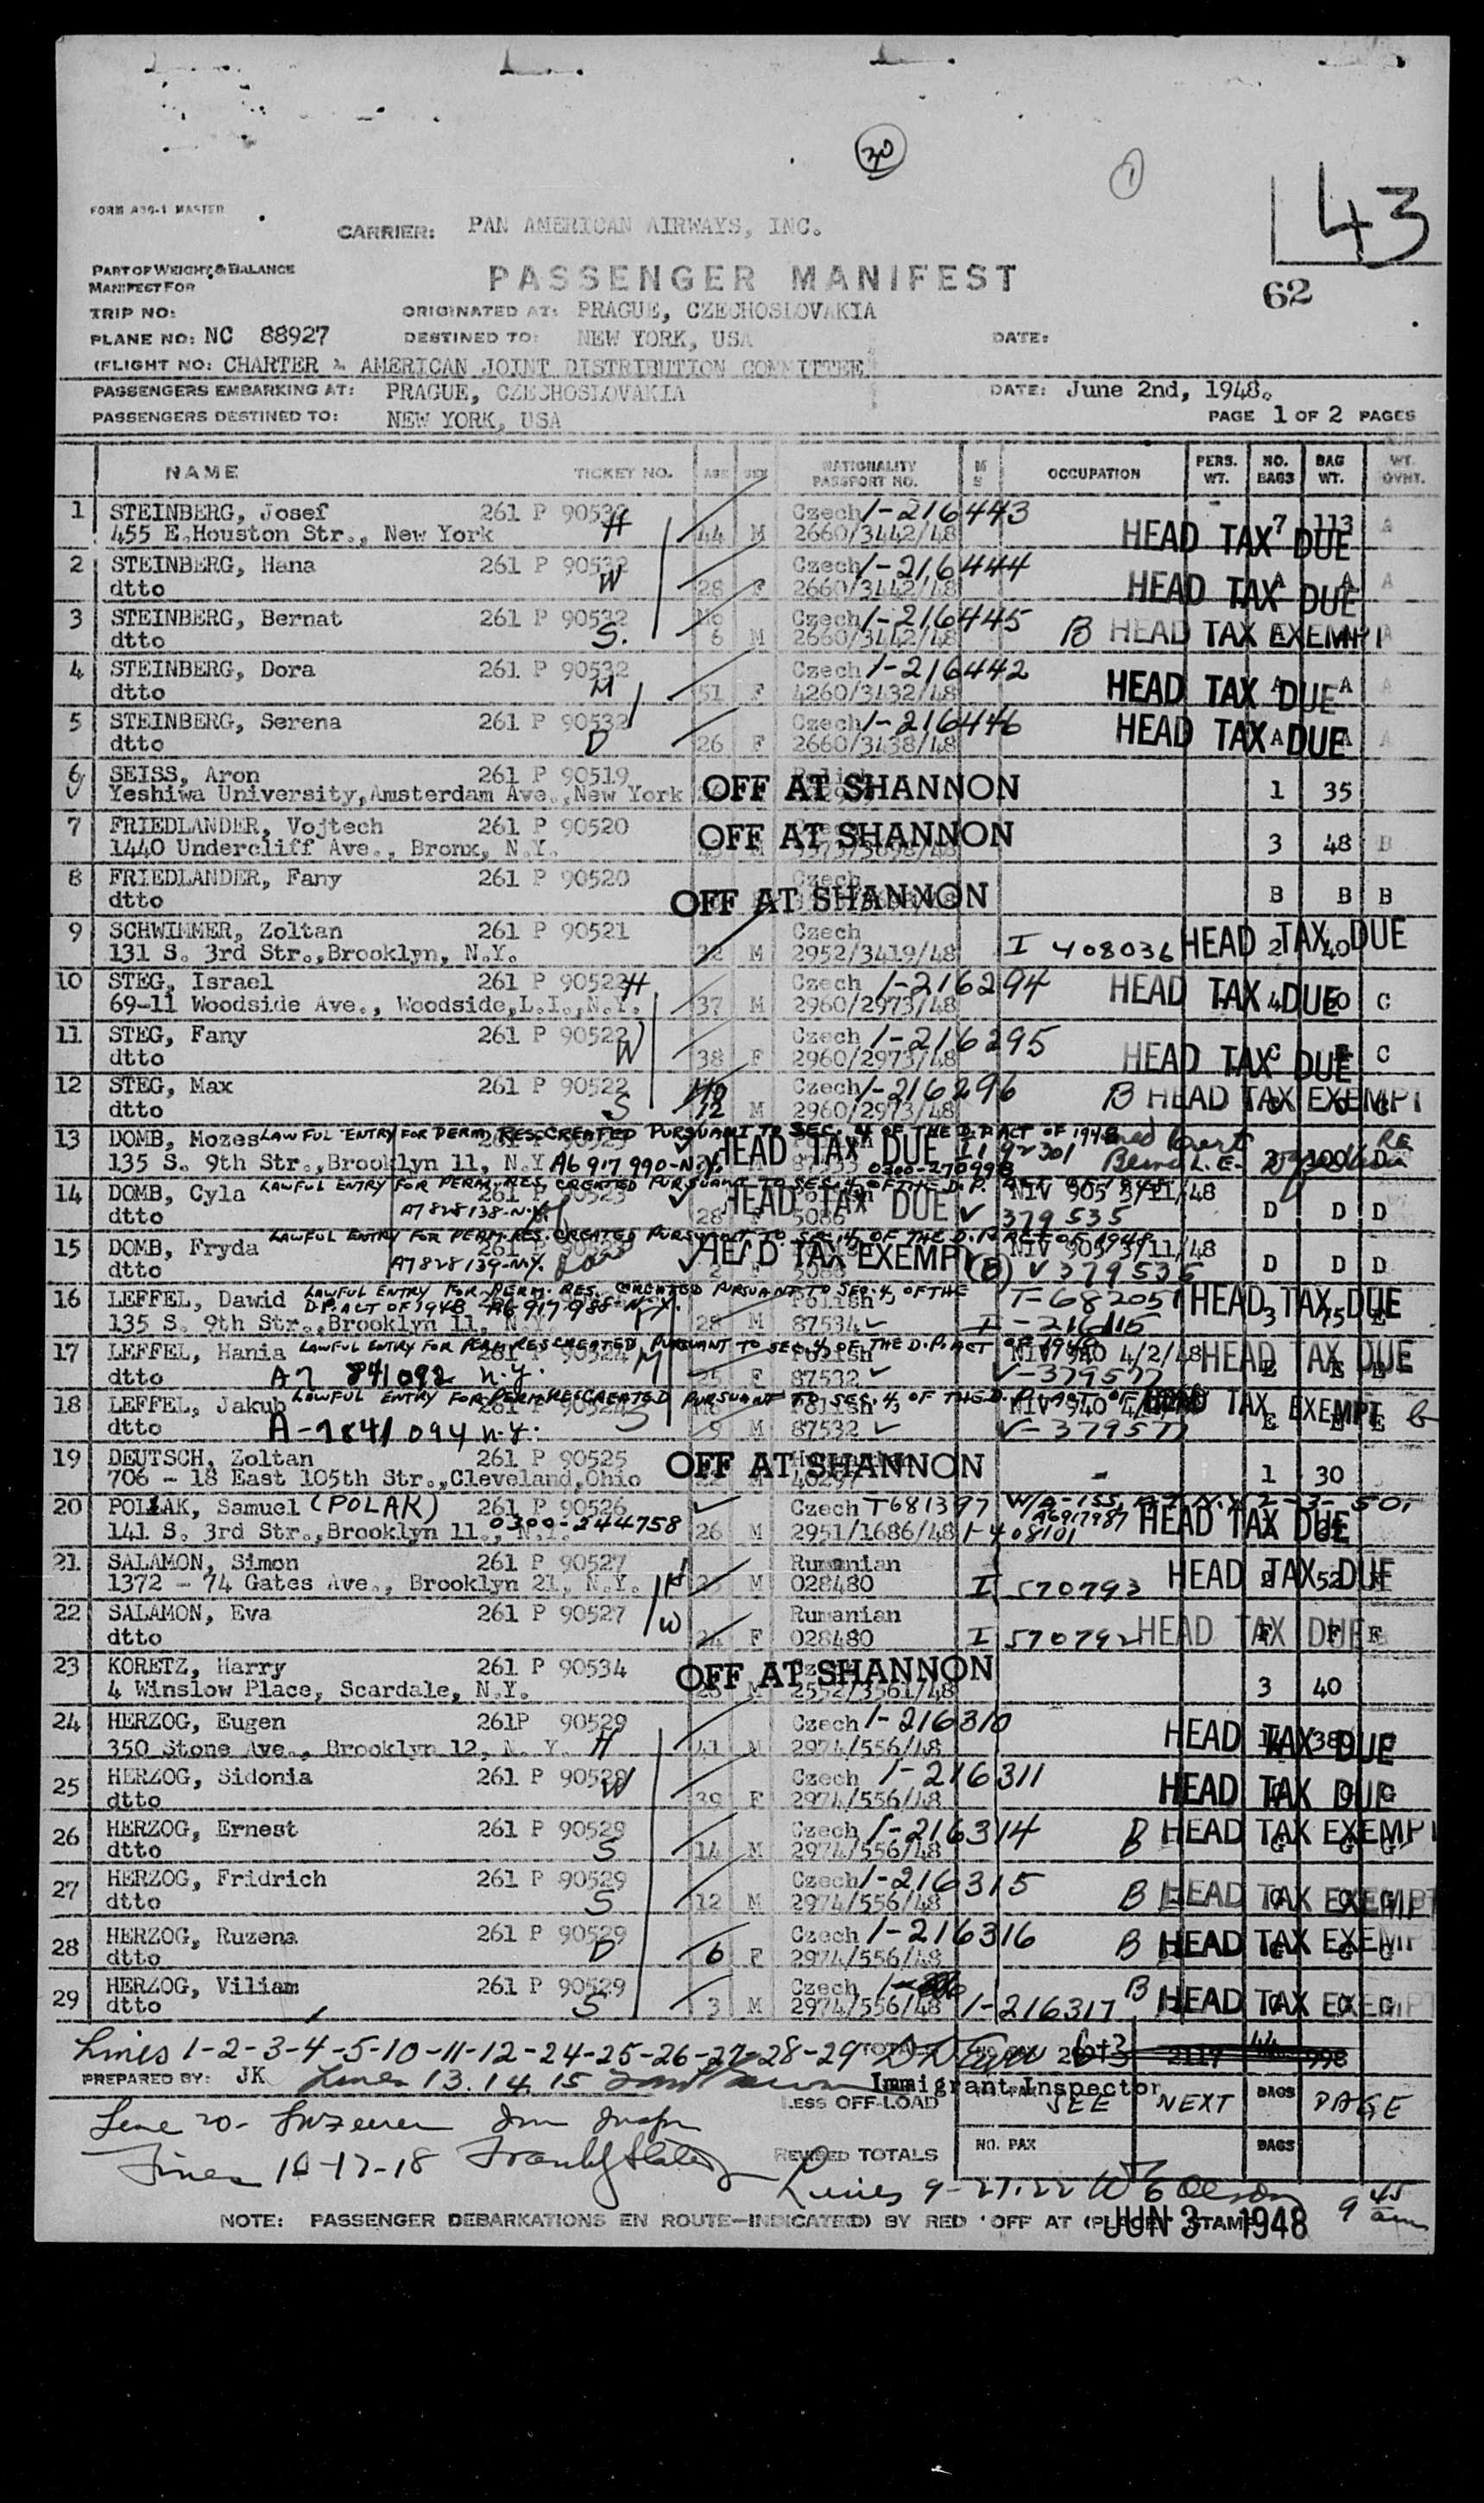 30
1
43
FORM A36-1 MASTER
CARRIER: PAN AMERICAN AIRWAYS, INC.
PART OF WEIGHT & BALANCE
MANIFEST FOR
PASSENGER MANIFEST
62
TRIP NO:
ORIGINATED AT: PRAGUE, CZECHOSLOVAKIA
PLANE NO: NC 88927 DESTINED TO: NEW YORK, USA DATE:
(FLIGHT NO: CHARTER AMERICAN JOINT DISTRIBUTION COMMITTEE
PASSENGERS EMBARKING AT: PRAGUE, CZECHOSLOVAKIA DATE: June 2nd, 1948.
PASSENGERS DESTINED TO: NEW YORK, USA PAGE 1 OF 2 PAGES
NAME TICKET NO. AGE SEX NATIONALITY PASSPORT NO. M S OCCUPATION PERS. WT. NO. BAGS BAG WT. WT. OVHT.
1 STEINBERG, Josef 261 P 90532 Czech 1-216443
455 E.Houston Str., New York H 44 M 2660/3442/48 HEAD TAX DUE 7 113 A
2 STEINBERG, Hana 261 P 90532 Czech 1-216444
dtto W 28 F 2660/3442/48 HEAD TAX DUE A A A
3 STEINBERG, Bernat 261 P 90532 Mo Czech 1-216445
dtto S. 6 M 2660/3442/48 B HEAD TAX EXEMPT A
4 STEINBERG, Dora 261 P 90532 Czech 1-216442
dtto M 51 F 4260/3432/48 HEAD TAX DUE A A A
5 STEINBERG, Serena 261 P 90532 Czech 1-216446
dtto D 26 F 2660/3438/48 HEAD TAX DUE A A A
6 SEISS, Aron 261 P 90519
Yeshiwa University,Amsterdam Ave.,New York OFF AT SHANNON 1 35
7 FRIEDLANDER, Vojtech 261 P 90520
1440 Undercliff Ave., Bronx, N.Y. OFF AT SHANNON 3 48 B
8 FRIEDLANDER, Fany 261 P 90520 Czech
dtto OFF AT SHANNON B B B
9 SCHWIMMER, Zoltan 261 P 90521 Czech
131 S. 3rd Str.,Brooklyn, N.Y. M 2952/3419/48 I 408036 HEAD TAX DUE 2 40
10 STEG, Israel 261 P 90522 H Czech 1-216294
69-11 Woodside Ave., Woodside,L.I.,N.Y. 37 M 2960/2973/48 HEAD TAX DUE 4 C
11 STEG, Fany 261 P 90522 Czech 1-216295
dtto W 38 F 2960/2973/48 HEAD TAX DUE C C
12 STEG, Max 261 P 90522 Czech 1-216296
dtto S 12 M 2960/2973/48 B HEAD TAX EXEMPT
13 DOMB, Mozes LAWFUL ENTRY FOR PERM. RES. CREATED PURSUANT TO SEC. 4 OF THE D.P. ACT OF 1948
135 S. 9th Str.,Brooklyn 11, N.Y. A6 917 990-N.Y. HEAD TAX DUE 0300-270998 L.E. 100 D
14 DOMB, Cyla LAWFUL ENTRY FOR PERM. RES. CREATED PURSUANT TO SEC. 4 OF THE D.P. NIV 905 3/11/48
dtto A7828138-N.Y. 28 5086 HEAD TAX DUE V 379535 D D D
15 DOMB, Fryda LAWFUL ENTRY FOR PERM. RES. CREATED PURSUANT TO SEC. 4 OF THE D.P. ACT OF 1948 NIV 905 3/11/48
dtto A7828139-N.Y. HEAD TAX EXEMPT (B) V 379536 D D D
16 LEFFEL, Dawid LAWFUL ENTRY FOR PERM. RES. CREATED PURSUANT TO SEC. 4 OF THE
D.P. ACT OF 1948 A6 917 988-N.Y. Polish T-682051 HEAD TAX DUE
135 S. 9th Str.,Brooklyn 11, N.Y. 28 M 87534 I-216115
17 LEFFEL, Hania LAWFUL ENTRY FOR PERM. RES. CREATED PURSUANT TO SEC. 4 OF THE D.P. ACT OF 1948
dtto A7 841092 N.Y. W 25 F Polish 87532 NIV 940 4/2/48 V-379577 HEAD TAX DUE
18 LEFFEL, Jakub LAWFUL ENTRY FOR PERM. RES CREATED PURSUANT TO SEC. 4 OF THE D.P. ACT OF
dtto A-7841094 N.Y. S 9 M 87532 V-379577 HEAD TAX EXEMPT
19 DEUTSCH, Zoltan 261 P 90525
706 - 18 East 105th Str.,Cleveland,Ohio OFF AT SHANNON - 1 30
20 POLLAK, Samuel (POLAR) 261 P 90526 Czech T681397
141 S. 3rd Str.,Brooklyn 11., N.Y. 0300-244758 26 M 2951/1686/48 1-408101 A6917987 HEAD TAX DUE
21 SALAMON, Simon 261 P 90527 Rumanian
1372 - 74 Gates Ave., Brooklyn 21, N.Y. H M 028480 I 570793 HEAD TAX DUE
22 SALAMON, Eva 261 P 90527 Rumanian
dtto W 24 F 028480 I 570792 HEAD TAX DUE F F F
23 KORETZ, Harry 261 P 90534
4 Winslow Place, Scardale, N.Y. OFF AT SHANNON M 2552/3561/48 3 40
24 HERZOG, Eugen 261P 90529 Czech 1-216310
350 Stone Ave., Brooklyn 12, N. Y. H 41 M 2974/556/48 HEAD TAX DUE
25 HERZOG, Sidonia 261 P 90529 Czech 1-216311
dtto W 39 F 2974/556/48 HEAD TAX DUE G
26 HERZOG, Ernest 261 P 90529 Czech 1-216314
dtto S 14 M 2974/556/48 B HEAD TAX EXEMPT G G G
27 HERZOG, Fridrich 261 P 90529 Czech 1-216315
dtto S 12 M 2974/556/48 B HEAD TAX EXEMPT
28 HERZOG, Ruzena 261 P 90529 Czech 1-216316
dtto D 6 F 2974/556/48 B HEAD TAX EXEMPT
29 HERZOG, Viliam 261 P 90529 Czech
dtto S 3 M 2974/556/48 1-216317 B HEAD TAX EXEMPT
Lines 1-2-3-4-5-10-11-12-24-25-26-27-28-29 TOTAL 2117 998
PREPARED BY: JK Lines 13.14.15 Immigrant Inspector
LESS OFF-LOAD SEE NEXT BAGS PAGE
Line 20-
Lines 16-17-18
REVISED TOTALS NO. PAX BAGS
Lines 9-21.22 9 45 am
NOTE: PASSENGER DEBARKATIONS EN ROUTE-INDICATED BY RED 'OFF AT (PLACE)' STAMP
JUN 3 1948